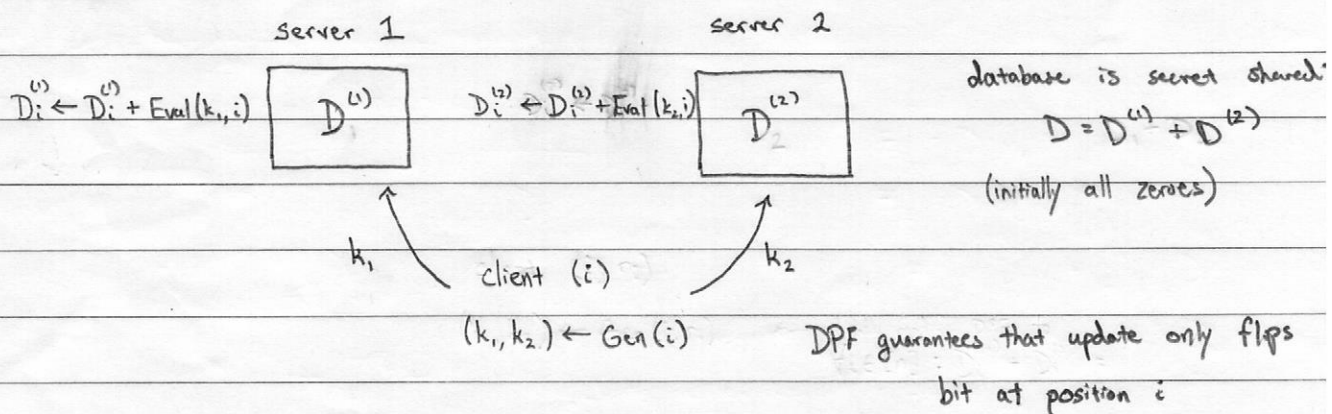 server 1
server 2
D_i^(1) ← D_i^(1) + Eval(k_1, i)
D^(1)
D_i^(2) ← D_i^(2) + Eval(k_2, i)
D^(2)
database is secret shared:
D = D^(1) + D^(2)
(initially all zeroes)
k_1
client (i)
k_2
(k_1, k_2) ← Gen(i)
DPF guarantees that update only flips
bit at position i